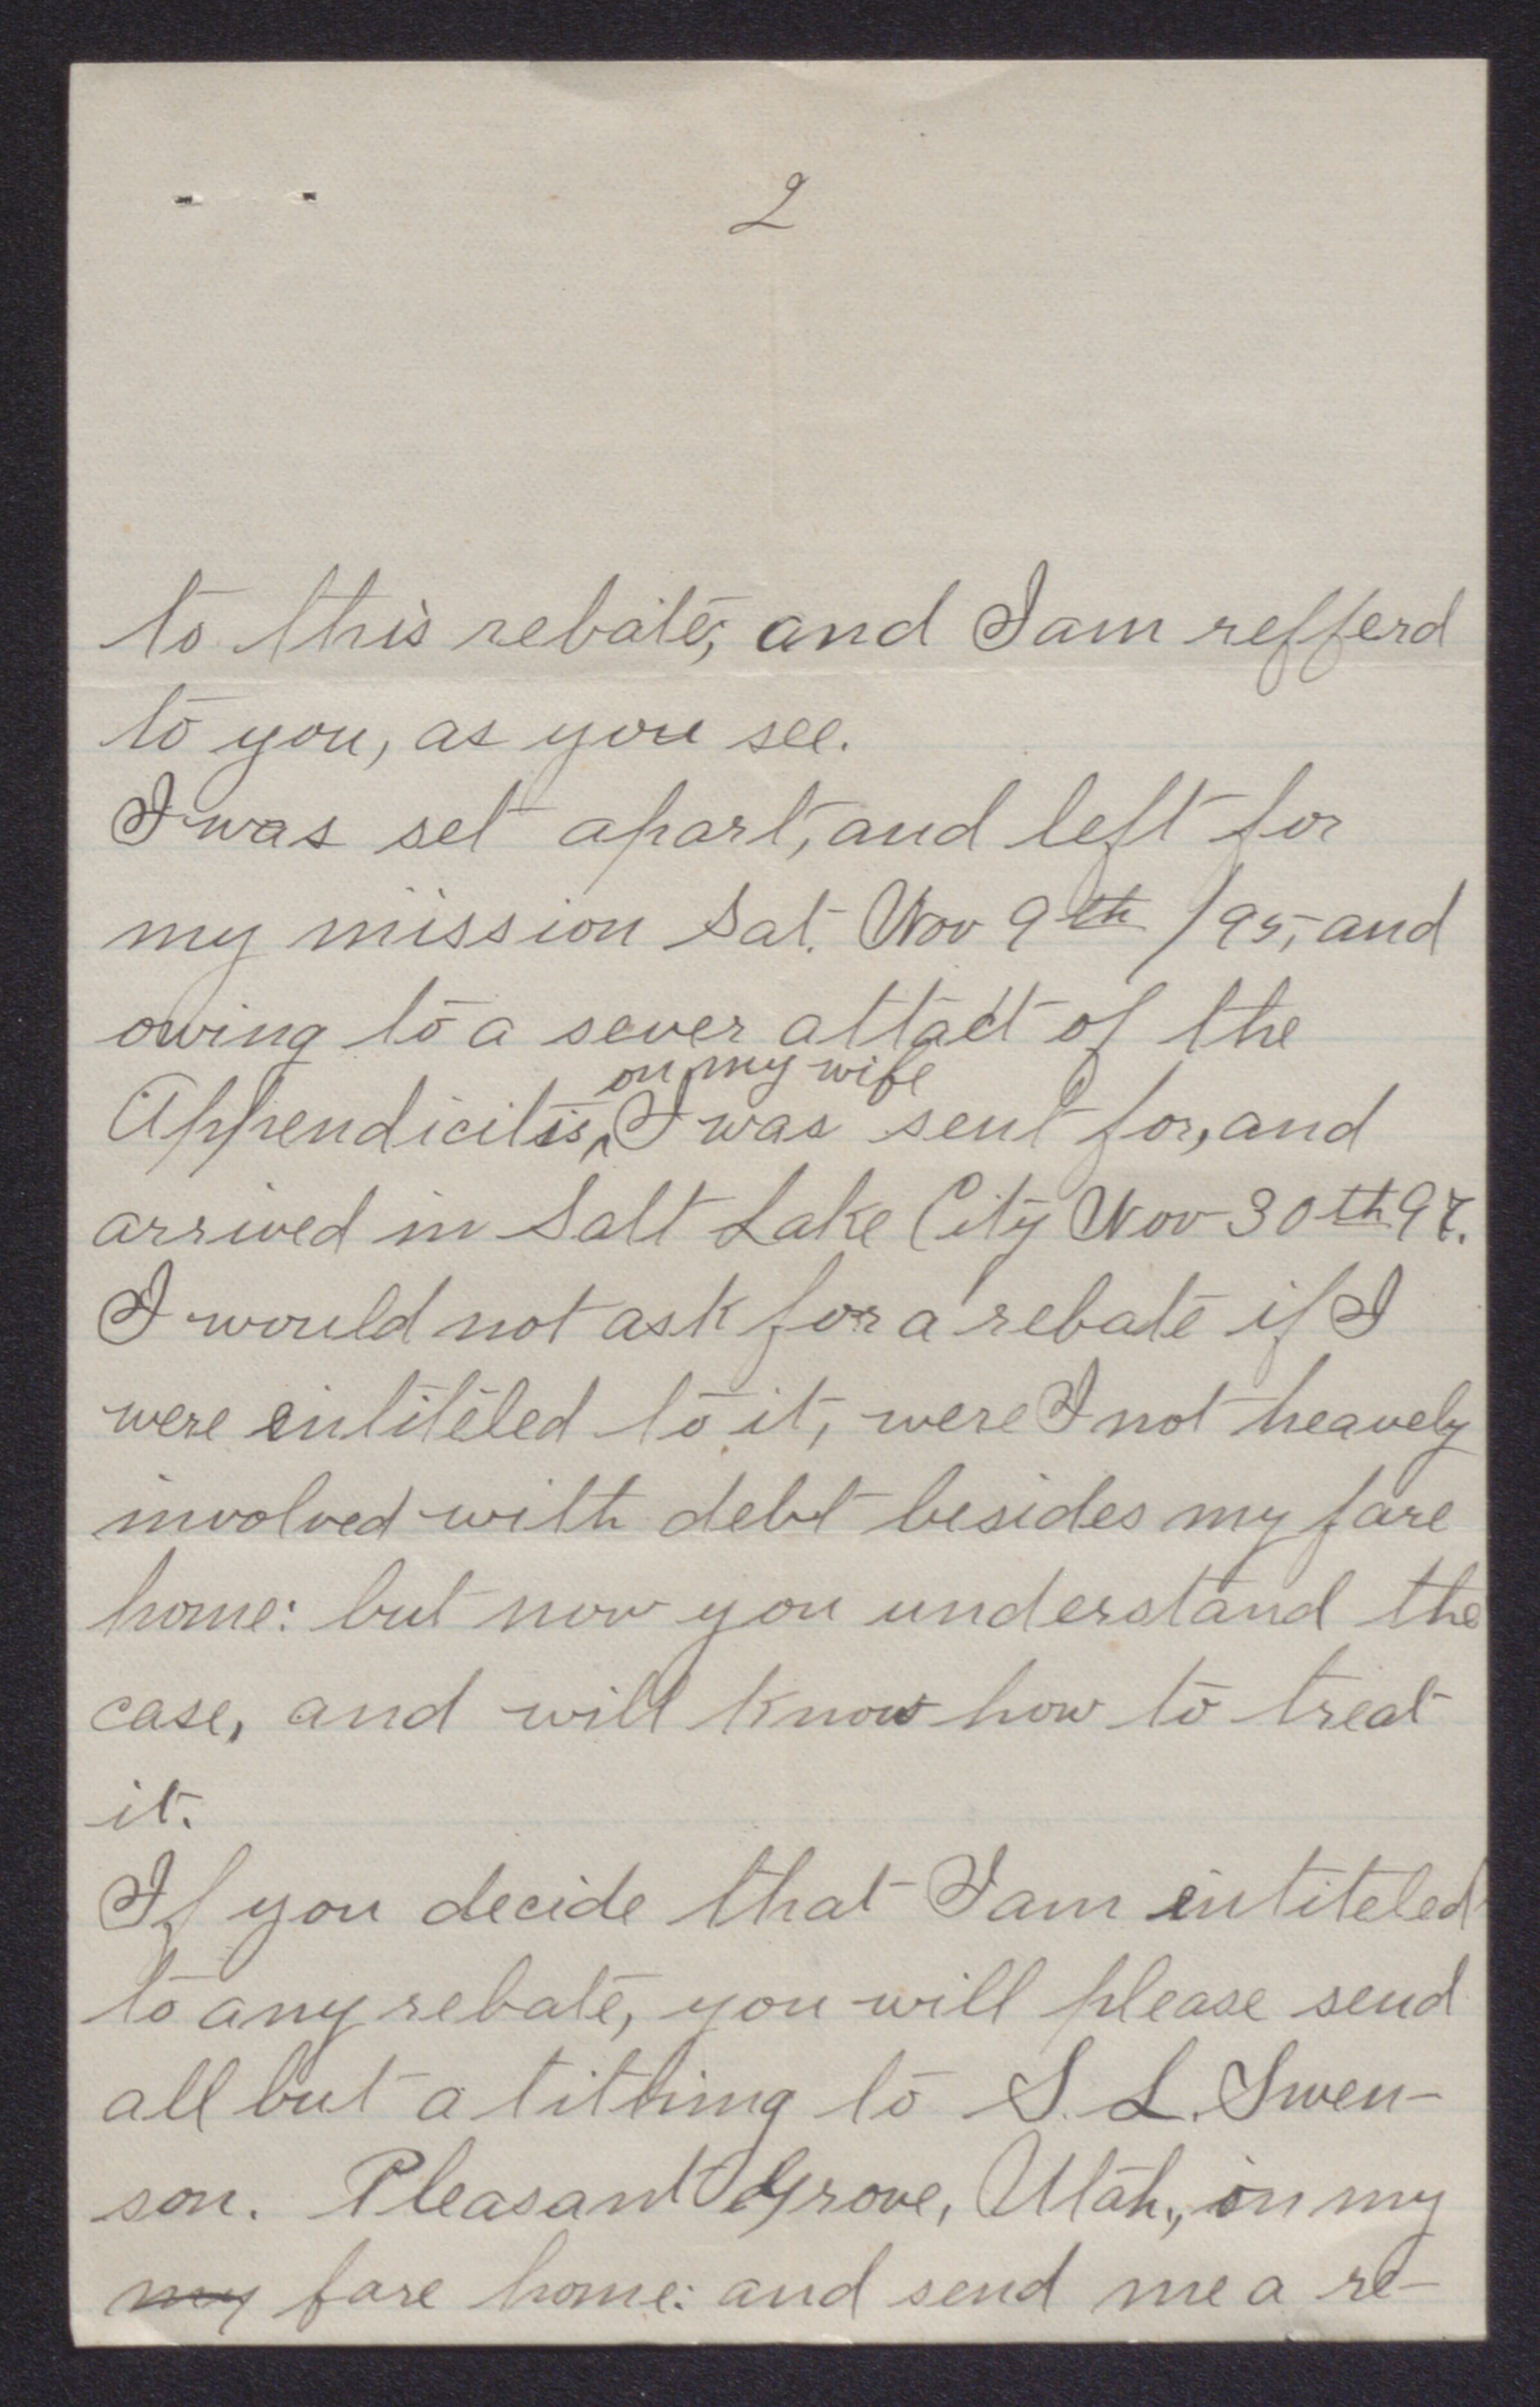 2
to this rebate, and I am refferd
to you, as you see.
I was set apart, and left for
my mission Sat. Nov 9th /95, and
owing to a sever attact of the
on my wife
Appendicitis, ^ I was sent for, and
arrived in Salt Lake City Nov 30th 97.
I would not ask for a rebate if I
were entiteled to it, were I not heavely
involved with debt besides my fare
home: but now you understand the
case, and will know how to treat
it.
If you decide that I am entiteled
to any rebate, you will please send
all but a tithing to S. L. Swen-
son. Pleasant Grove, Utah., on my
my fare home: and send me a re-